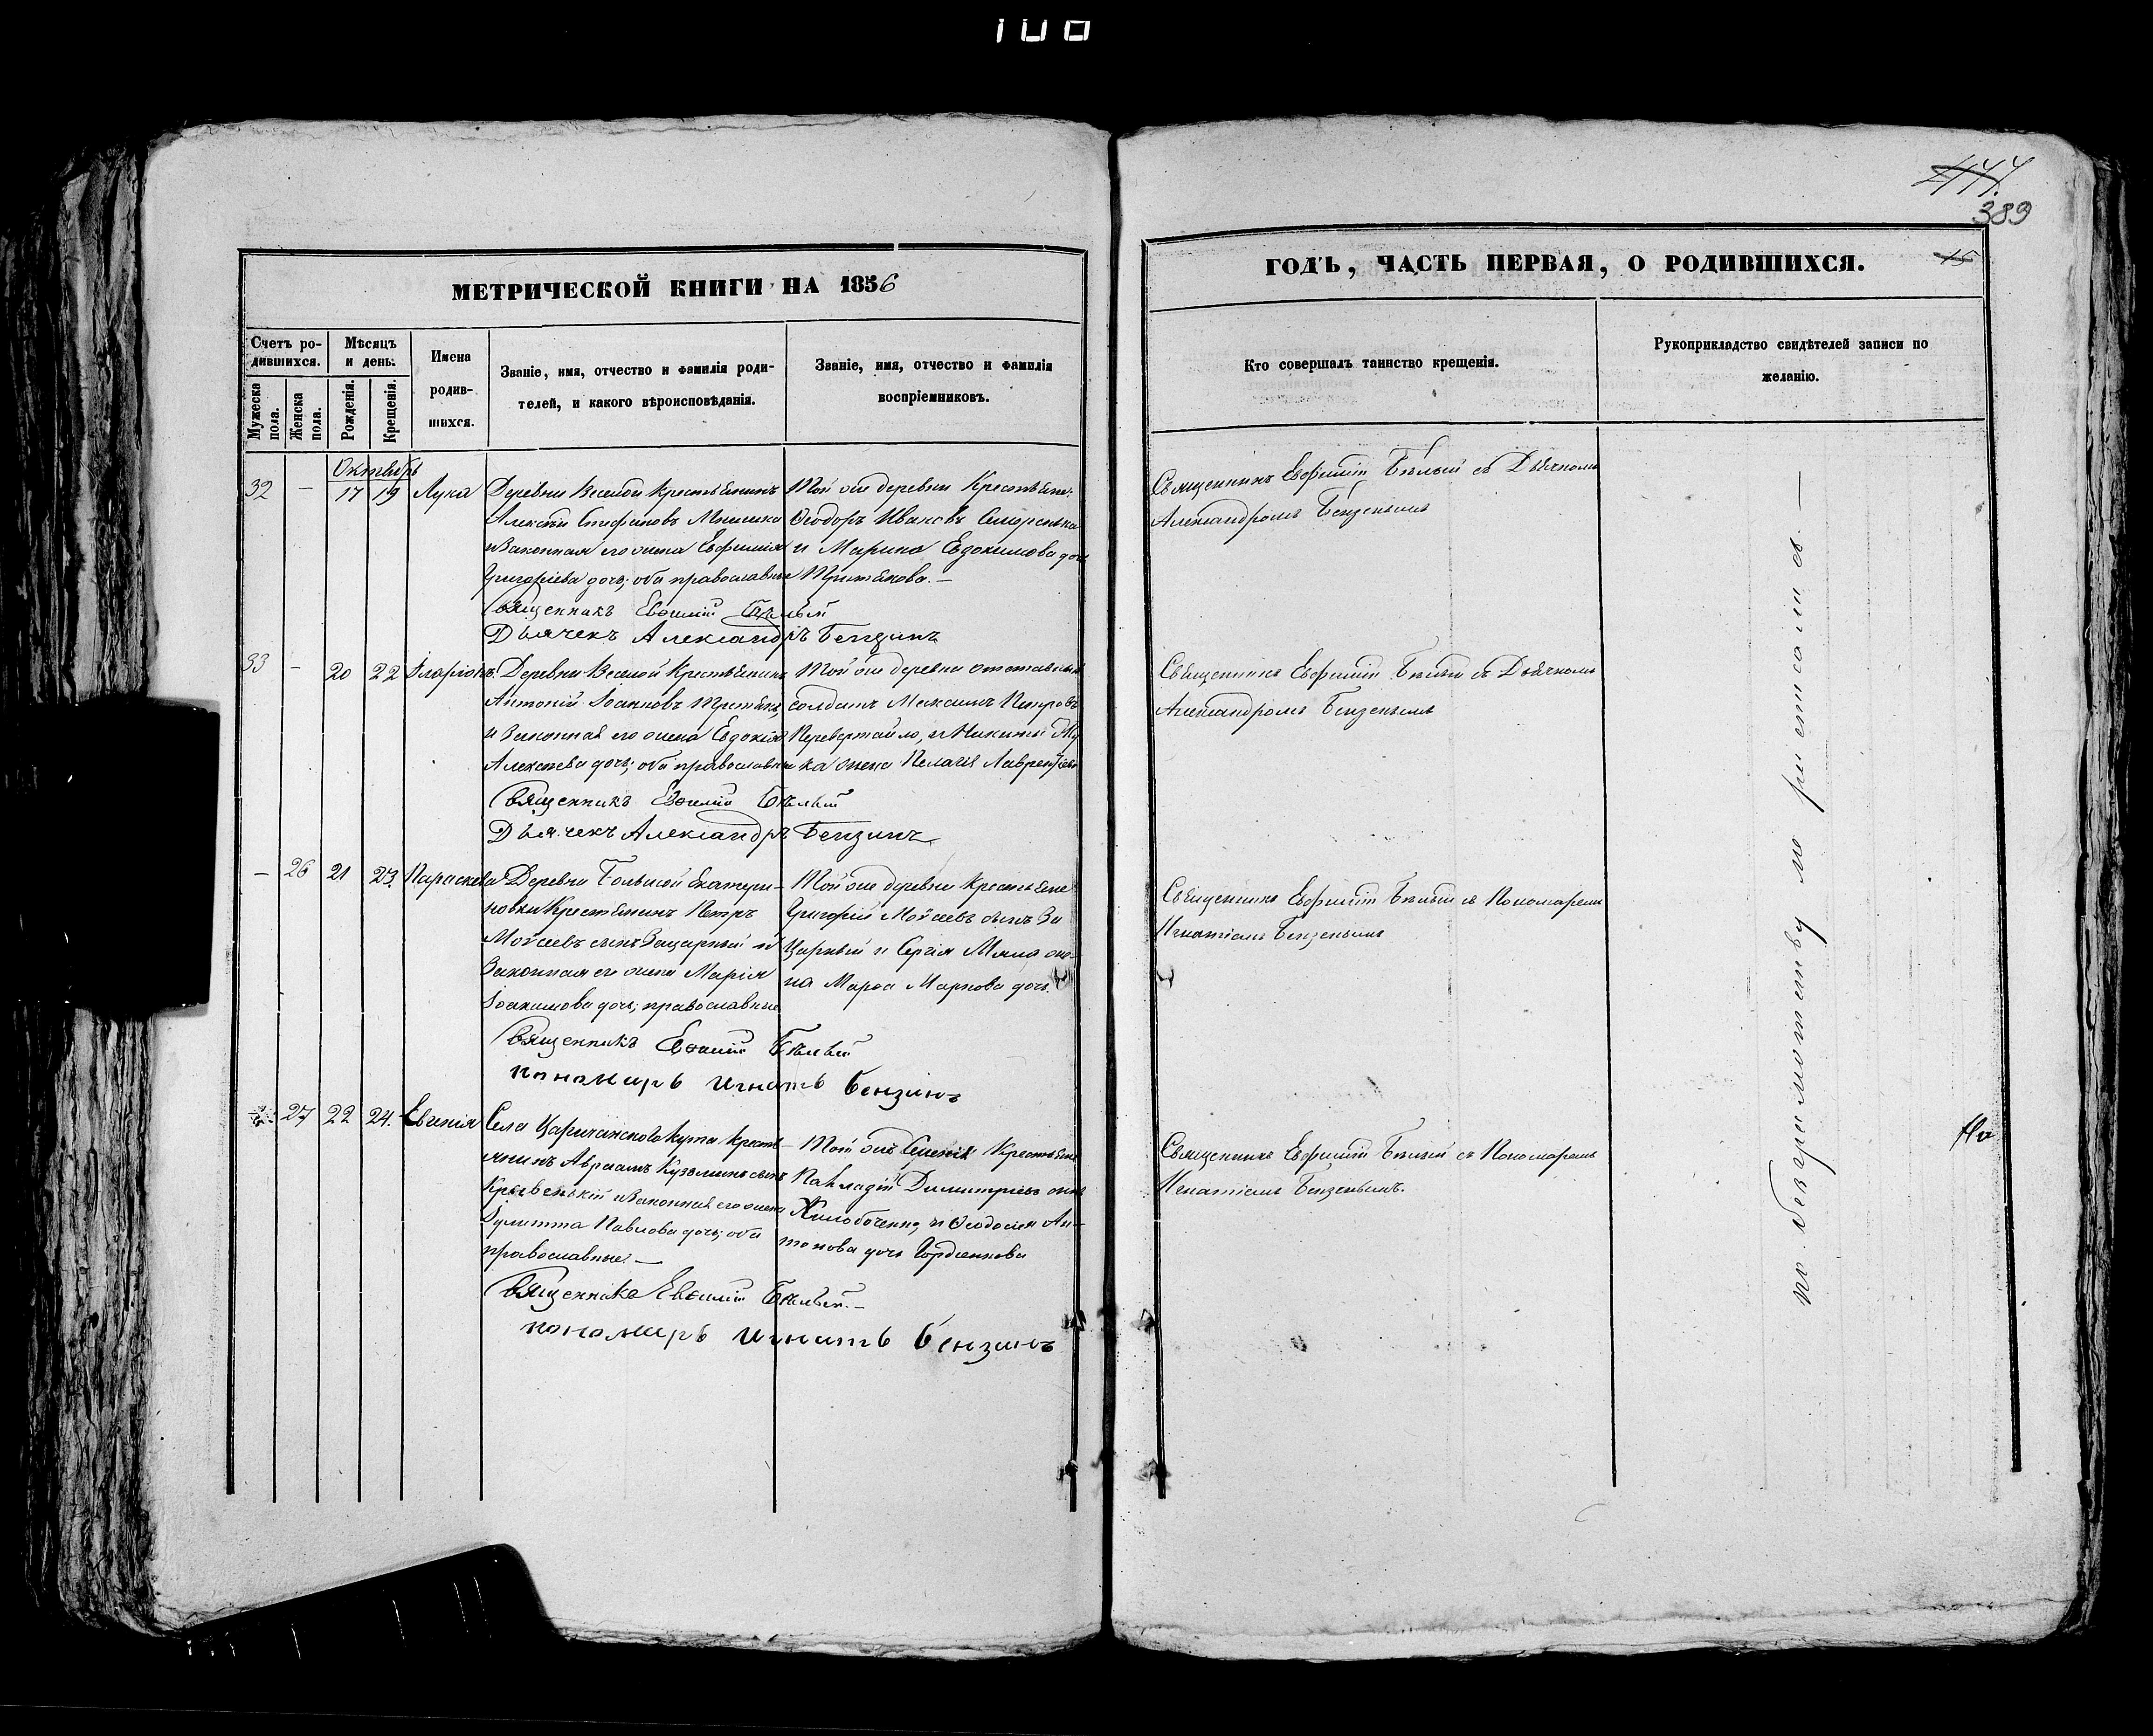 100
444.
389
15
МЕТРИЧЕСКОЙ КНИГИ НА 1856
ГОДЪ, ЧАСТЬ ПЕРВАЯ, О РОДИВШИХСЯ.
Счетъ ро-
дившихся.
Мужеска
пола.
Женска
пола.
Мѣсяцъ
и день.
Рожденія.
Крещенія.
Имена
родив-
шихся.
Званіе, имя, отчество и фамилія роди-
телей, и какого вѣроисповѣданія.
Званіе, имя, отчество и фамилія
воспріемниковъ.
Кто совершалъ таинство крещенія.
Рукоприкладство свидѣтелей записи по
желанію.
Октябрь
32 — 17 19 Лука
Деревни Веселой Крестьянинъ
Алексѣй Стефановъ
и Законная его жена Евфимія
Григоріева дочь; оба православные
Той же деревни Крестьяне:
Ѳеодоръ Ивановъ
и Марина Евдокимова доч
Притѣкова. —
Священникъ Евѳимій Бѣлый
Дьячекъ Александръ Бензинъ
Священникъ Евфимій Бѣлый съ Дьячкомъ
Александромъ Бензенымъ
33 — 20 22 Іларіонъ.
Деревни Веселой Крестьянинъ
Антоній Іоанновъ
и Законная его жена Евдокія
Алексѣева дочь; оба православны
Той же деревни отставный
солдатъ Максимъ Петровъ
Перевертайло, и Никиты
ка жена Пелагія Лаврентіева
Священникъ Евѳимій Бѣлый
Дьячекъ Александръ Бензинъ
Священникъ Евфимій Бѣлый съ Дьячкомъ
Александромъ Бензенымъ
— 26 21 23. Параскева
Деревни Большой Екатери-
новки Крестьянинъ Петръ
Мойсеевъ сынъ Зацарный и
Законная его жена Марія
Іоакимова дочь; православные
Той же деревни Крестьяне
Григорій Мойсеевъ сынъ За
Царный и Сергія Мяла же-
на Марѳа Маркова дочь.
Священникъ Евѳимій Бѣлый
пономарь Игнатъ бензинъ
Священникъ Евфимій Бѣлый съ Пономаремъ
Игнатіемъ Бензенымъ
27 22 24. Евгенія
Села Царичанского Кута Кресть-
янинъ Авраамъ Кузьминъ сынъ
Кривенькій и Законная его жена
Іулитта Павлова дочь; оба
православные. —
Той же Крестьяне
Палладій Димитріевъ сынъ
и Ѳеодосія Ан-
тонова дочь Гордіенкова
Священникъ Евѳимій Бѣлый. —
пономарь Игнатъ бензинъ
Священникъ Евфимій Бѣлый съ Пономаремъ
Игнатіемъ Бензенымъ.
по безграмотству не
На